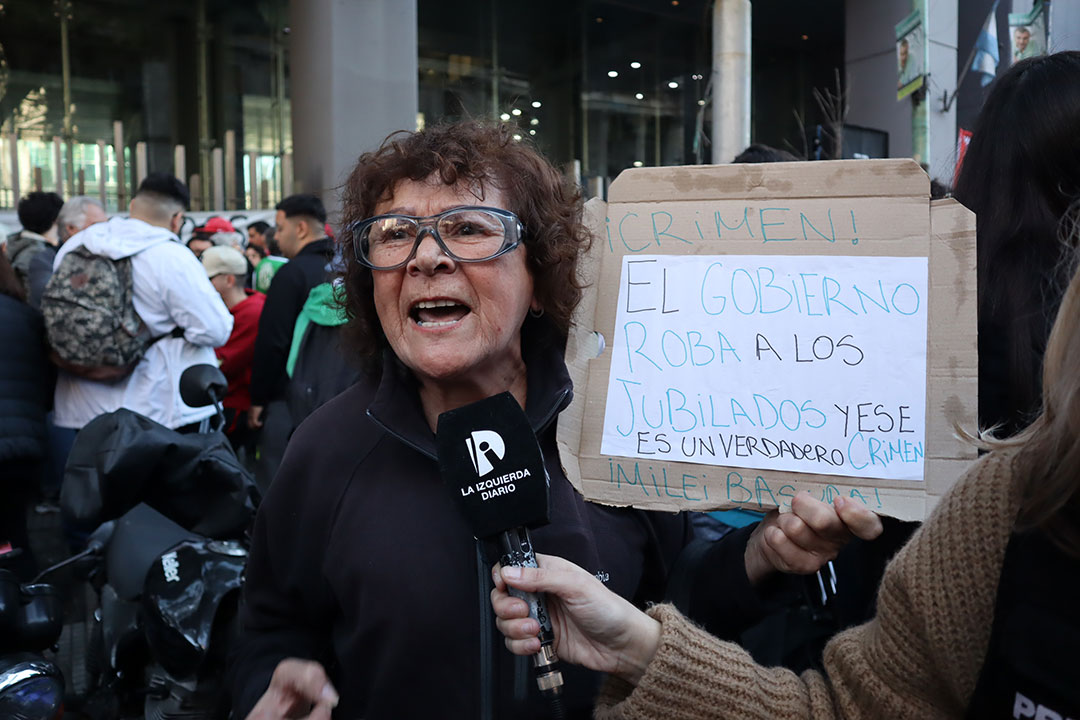 ¡CRIMEN!
EL GOBIERNO
ROBA A LOS
JUBILADOS Y ESE
ES UN VERDADERO CRIMEN
¡MILEI BASURA!
LA IZQUIERDA
DIARIO